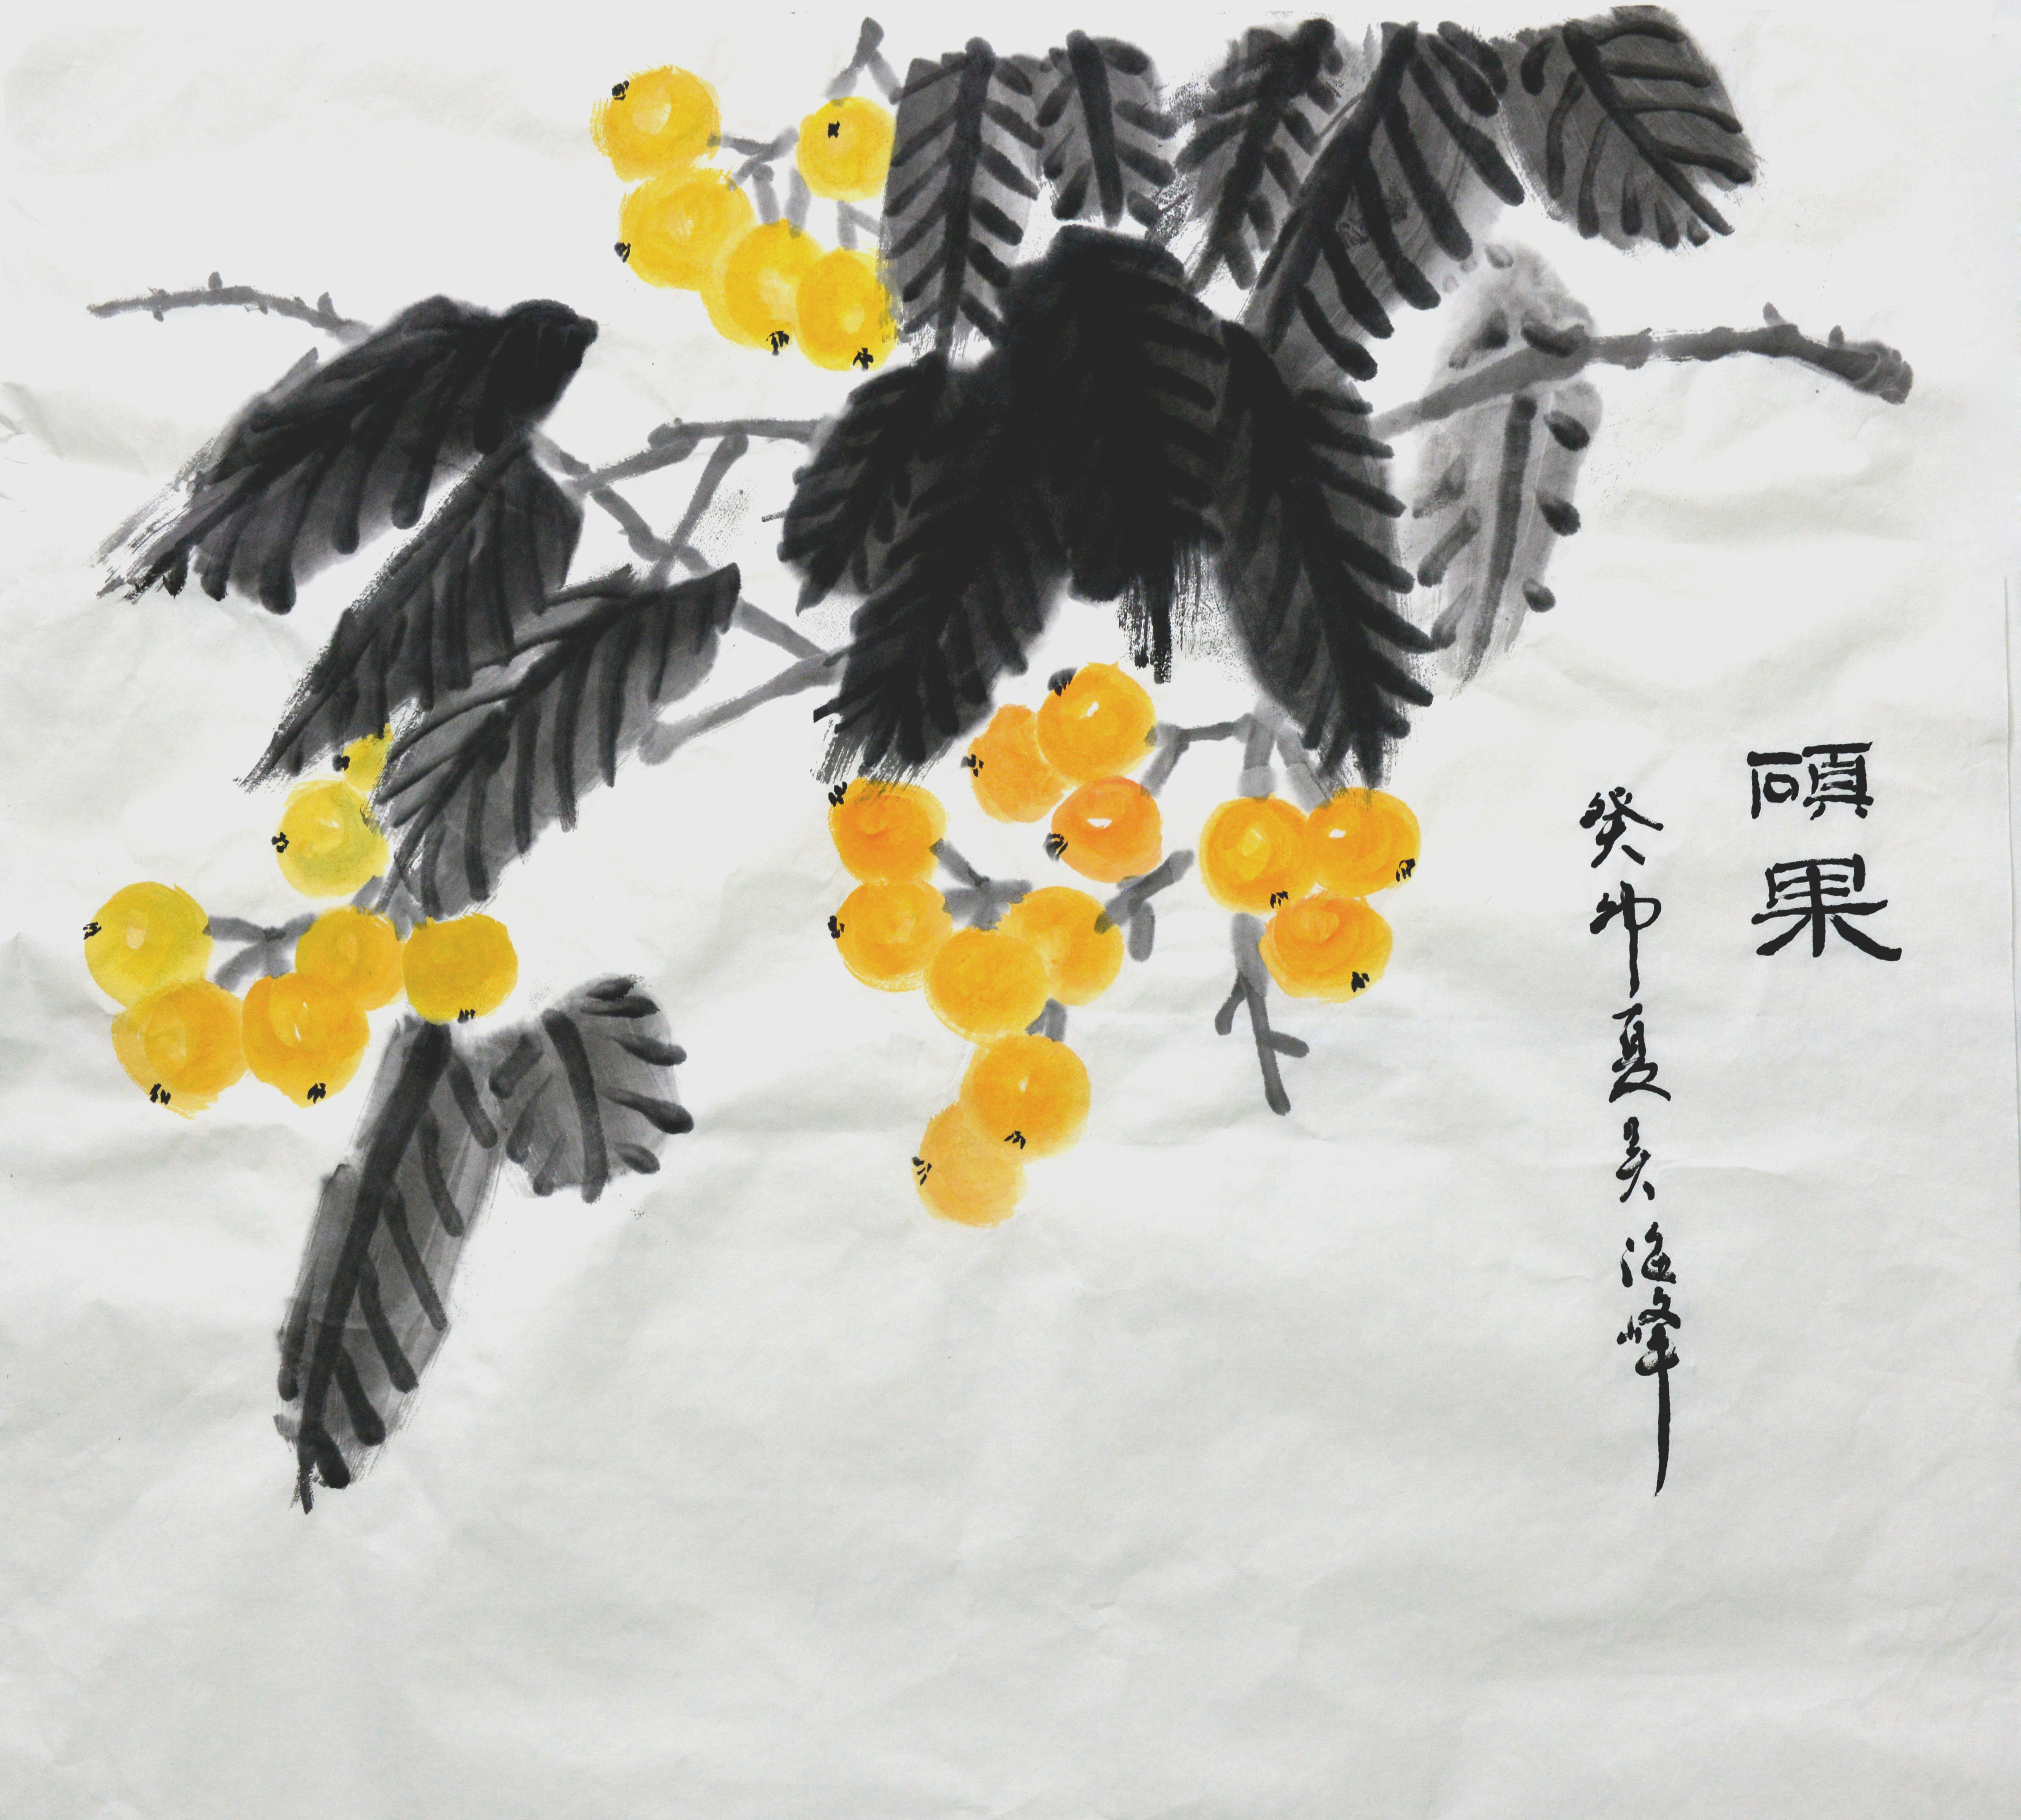 碩果
癸卯夏吴海峰